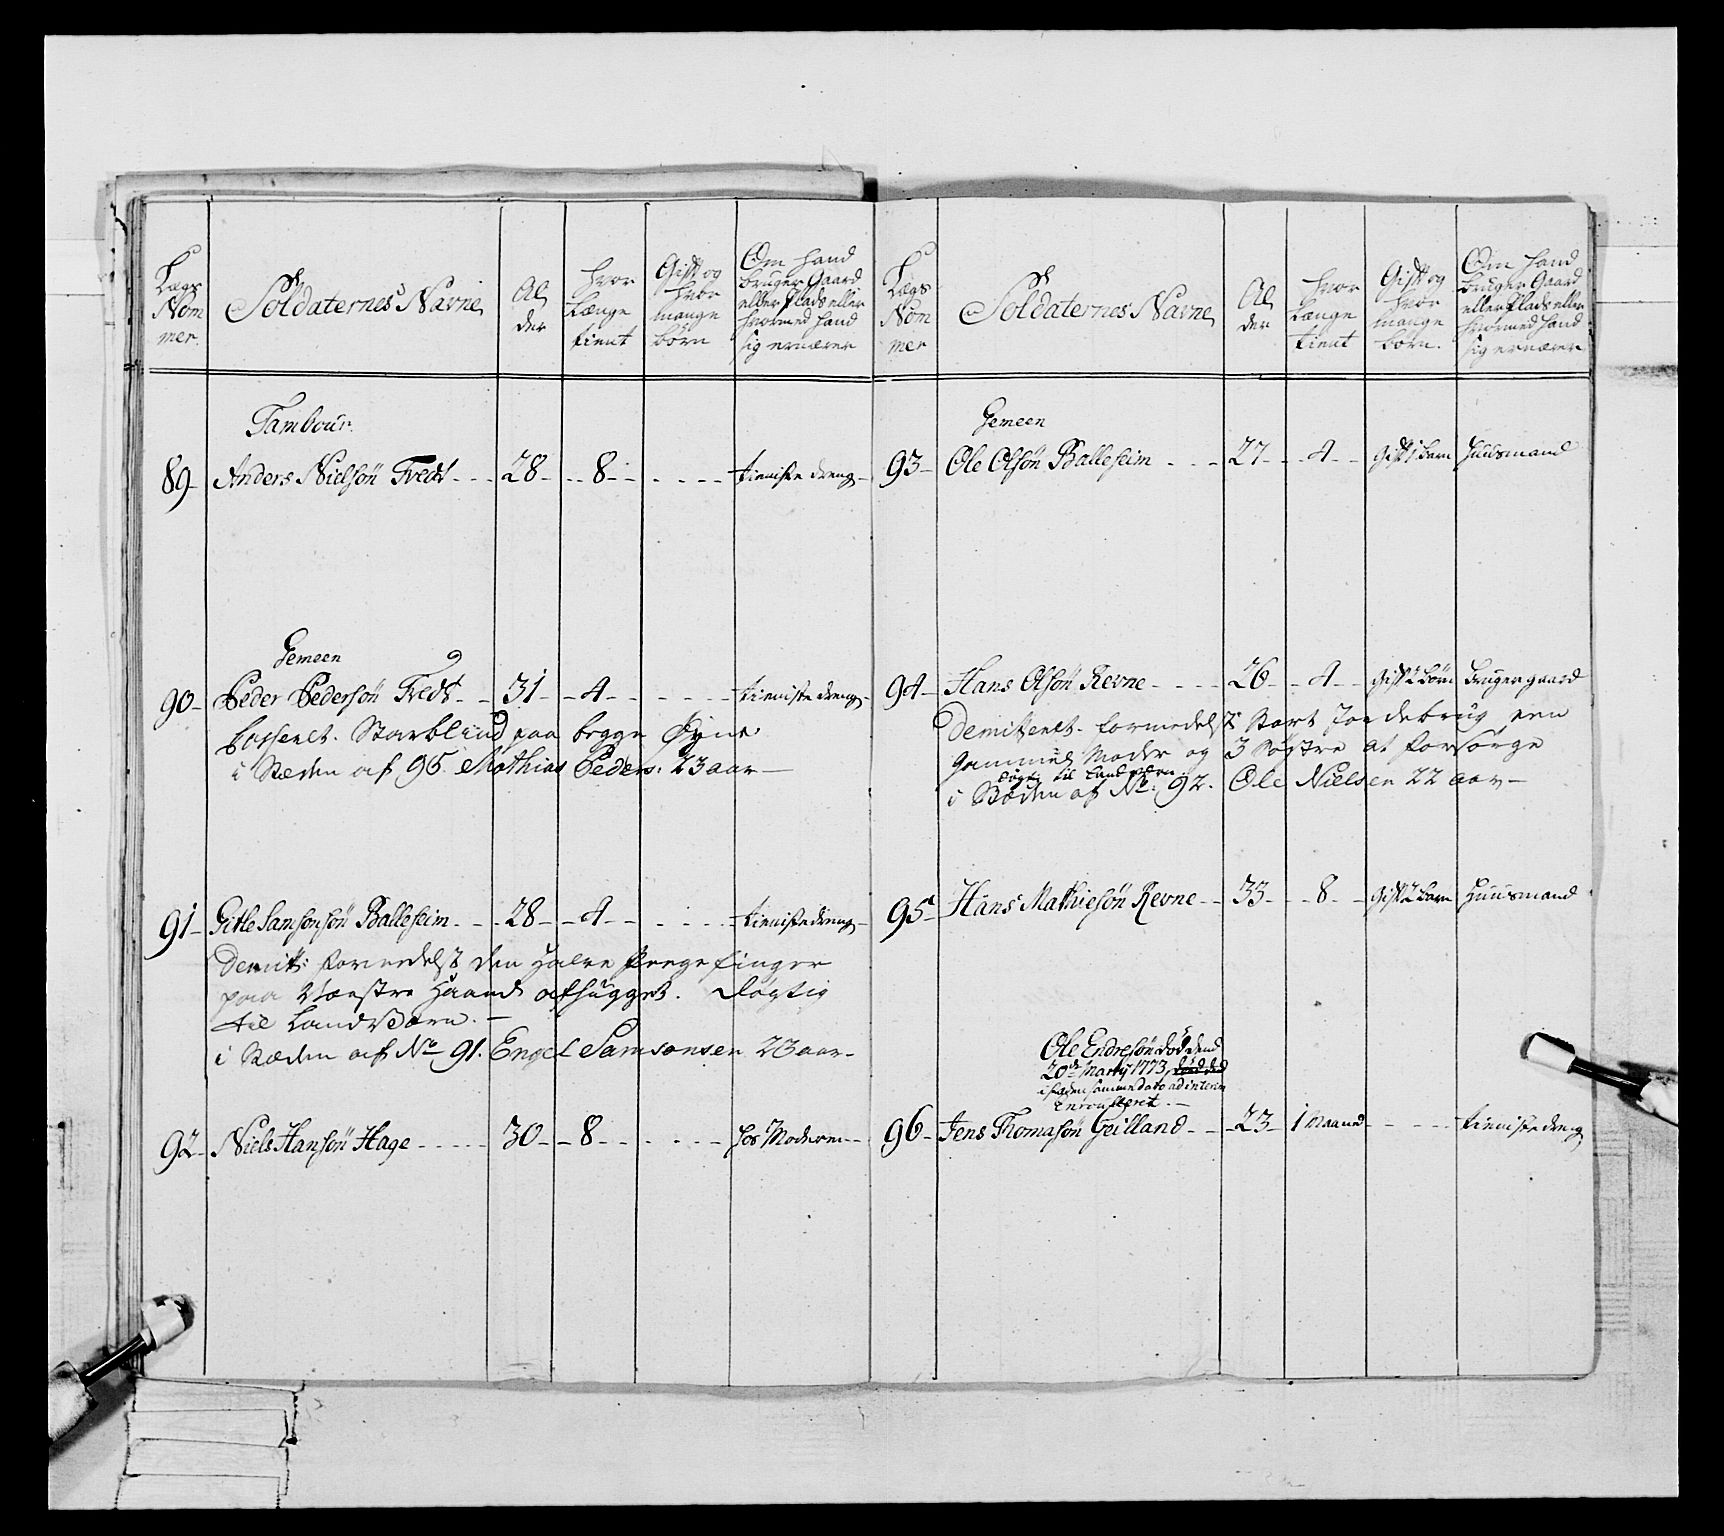 Lægs
Nom
mer.
Soldaternes Navne
Al
der
hvor
Længe
tient
Gift og
hvor
mange
börn
Om hand
bruger Gaard
eller Plads eller
hvormed hand
sig ernærer
Tambour.
89 Anders Nielsön Tvedt 28 8 tienistedreng
Gemeen
90 Peder Pedersön Tvedt 31 4 tienistedreng
Casseret. Starblind paa begge Øyne
i Stæden af 95 Mathias Peders: 23 aar
91 Gitle Samsonsön Balleseim 28 4 tienistedreng
Demitt: formedelst den halve Pege finger
paa Venstre Haand afhugget. Dögtig
til Landværn.
i Stæden af No 91. Engel Samsonsen 23 aar
92 Niels Hansön Hage 30 8 hos Moderen
Lægs
Nom
mer
Soldaternes Navne
Al
der
hvor
Længe
tient
Gift og
hvor
mange
börn.
Om hand
bruger Gaard
eller Plads eller
hvormed hand
sig ernærer
Gemeen
93 Ole Olsön Balleseim 27 4 gift 1 barn Huusmand
94 Hans Olsön Revne 26 4 gift 2 börn bruger gaard
Demitteret. formedelst Stort Jordebrug een
gammel Moder og 3 Søstre at forsörge
dögtig til Landværn
i Stæden af No: 92. Ole Nielsen 22 aar
95 Hans Mathiesön Revne 33 8 gift 2 barn Huusmand
Ole Endresön död dend
20de Marty 1773
i staden samme dato ad interim
Enroulleret.
96 Jens Thomasön Geilland 23 1 Maaned tienistedreng